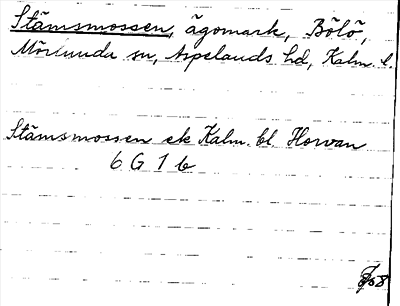 Stämsmossen, ägomark, Bölö,
Mörlunda sn, Aspelands hd, Kalm. l.
Stämsmossen ek Kalm. bl. Horvan
6 G 1 b